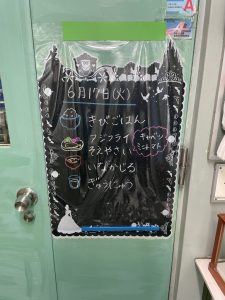 6月17日(火)
きびごはん
アジフライ
そえやさい
キャベツ
ミニトマト
いなかじる
ぎゅうにゅう